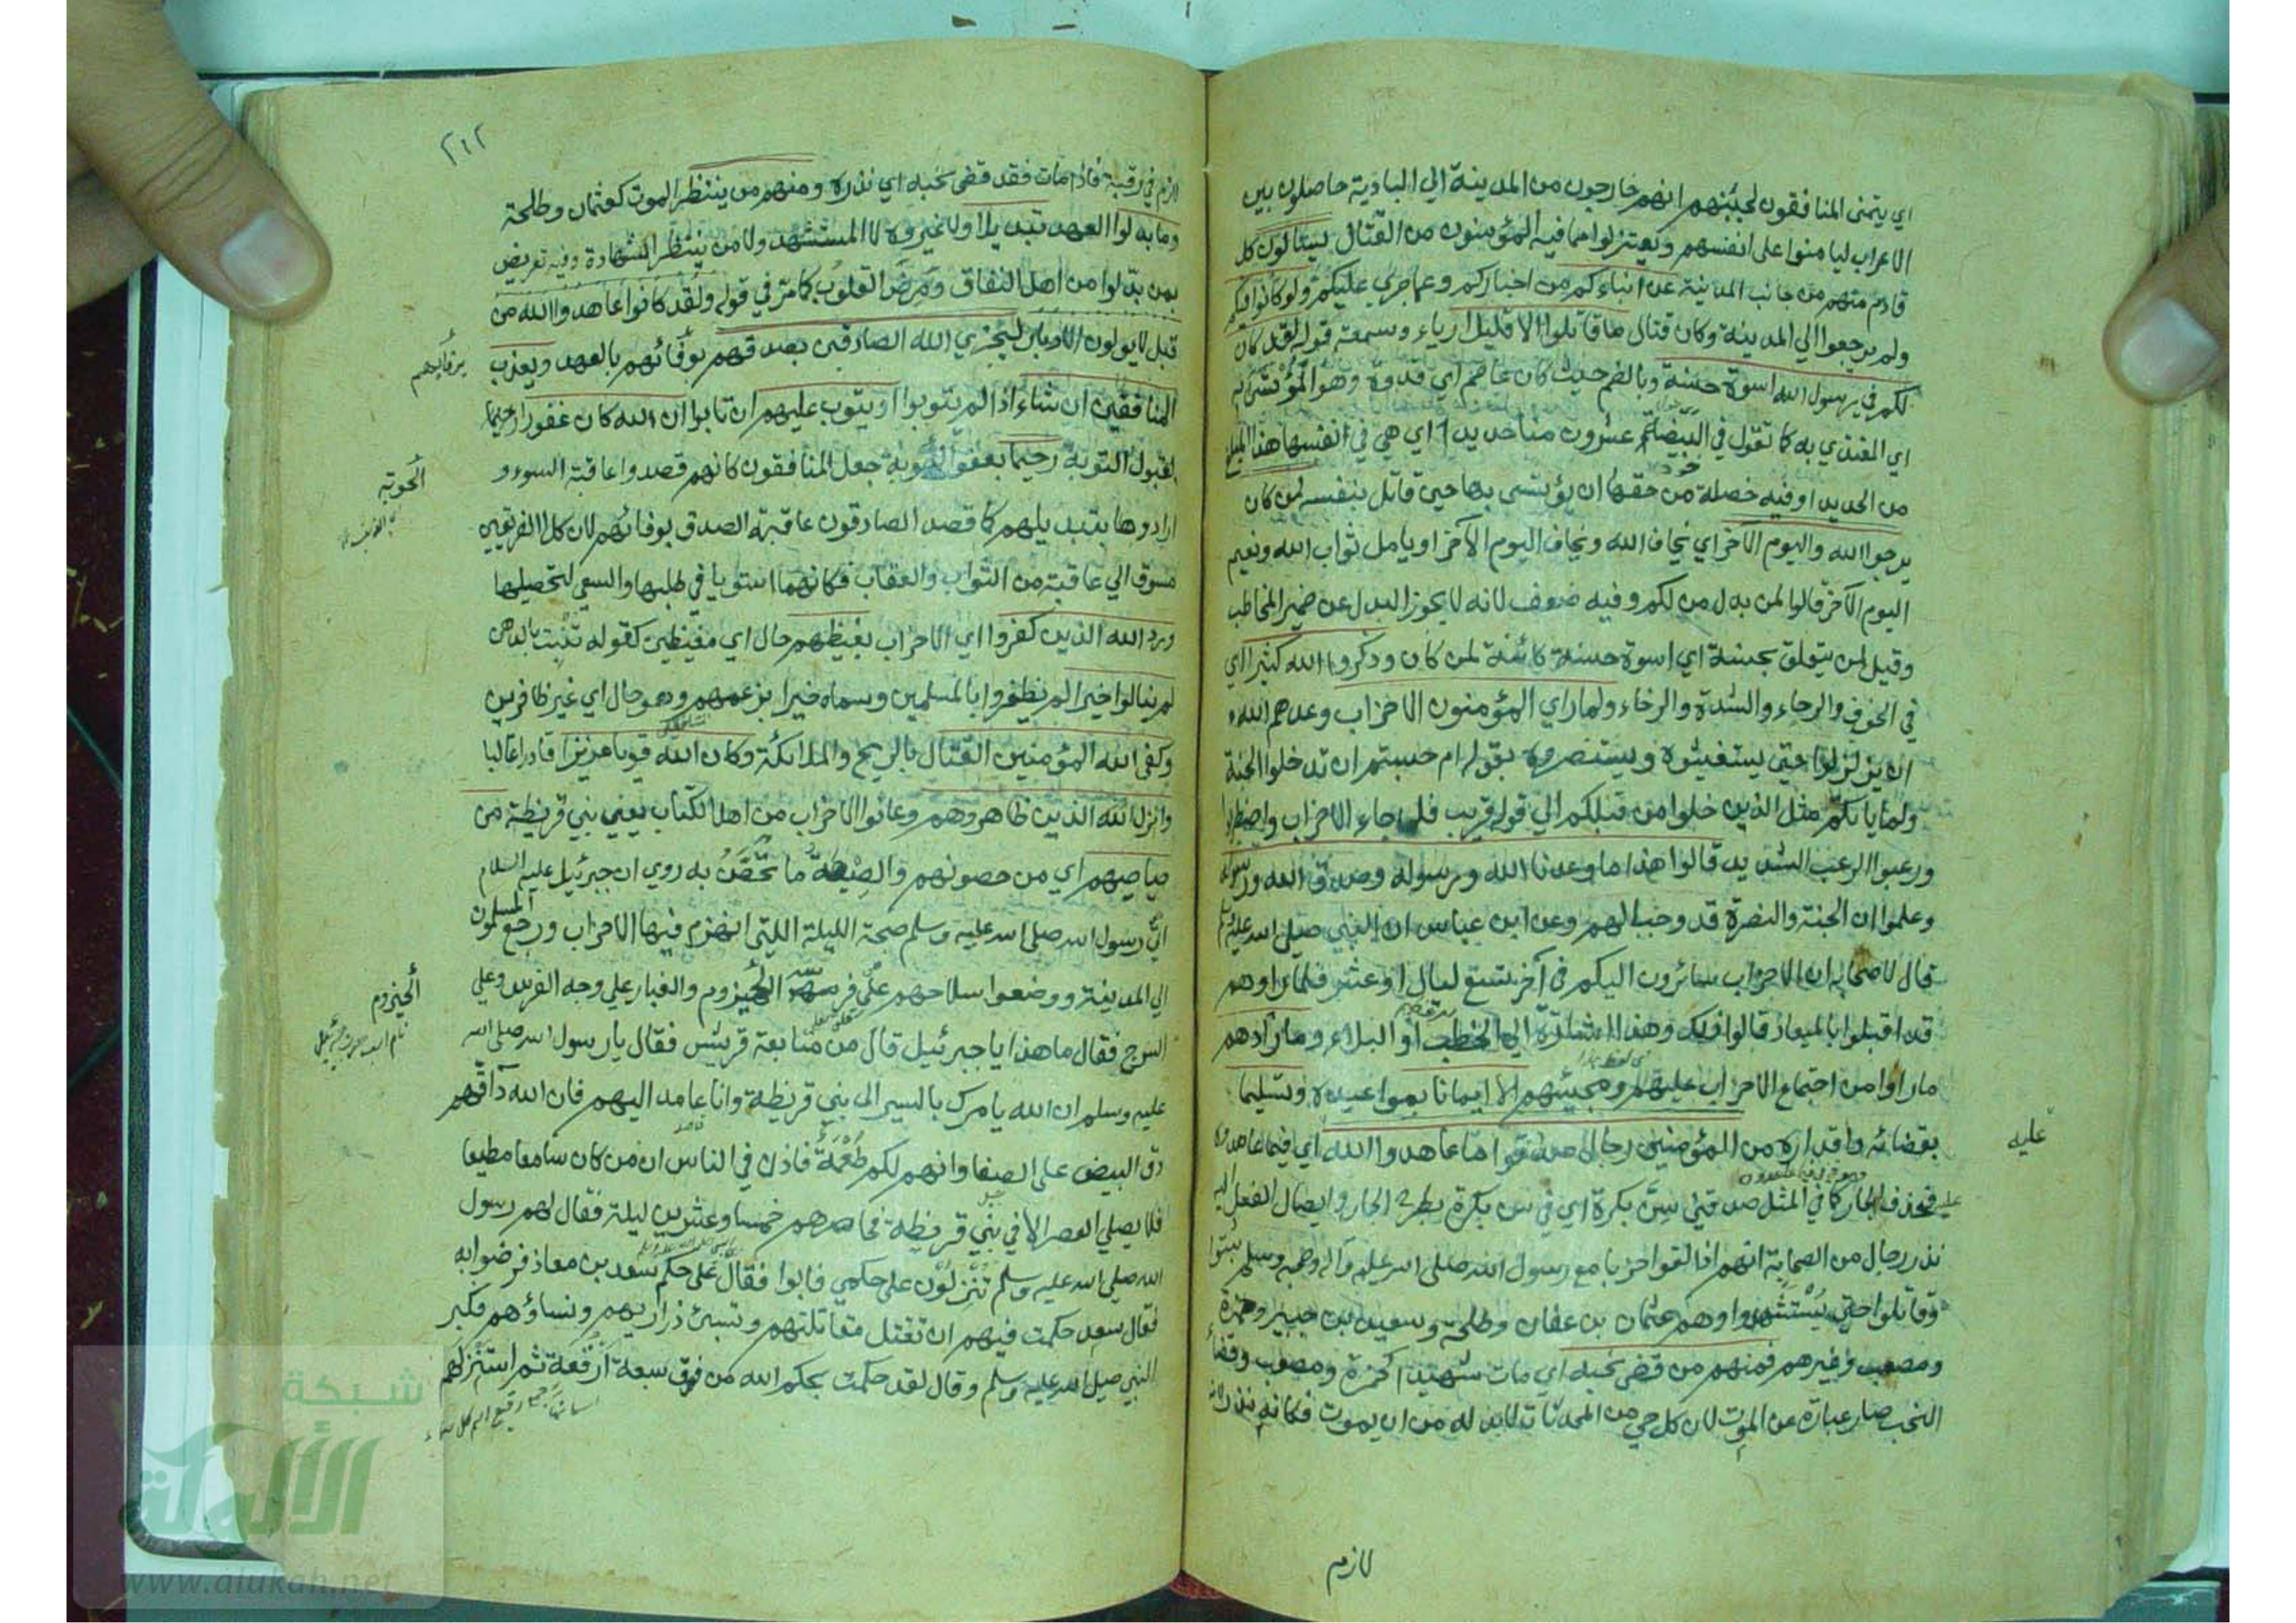 اي يتمنى المنافقون لجبنهم انهم خارجون من المدينة الي البادية حاصلون بين
الاعراب ليامنوا على انفسهم ويعتزلوا مما فيه المؤمنون من القتال يسئالون كل
قادم منهم من جانب المدينة عن انباءكم من اخباركم وعما جري عليكم ولو كانوا فيكم
ولم يرجعوا الي المدينة وكان قتال ما قاتلوا الا قليلا رياء وسمعة قوله لقد كان
لكم في رسول الله اسوة حسنة وبالضم حيث كان عاصم اي قدوة وهو المؤتسى به
اي المقتدي به كما تقول في البيضة عشرون منا حديدا اي هي في انفسها هذا المبلغ
من الحديد او فيه خصلة من حقها ان يؤتسى بها حين قاتل بنفسه لمن كان
يرجوا الله واليوم الآخر اي يخاف الله ويخاف اليوم الآخر او يامل ثواب الله ونعيم
اليوم الآخر قالوا لمن بدل من لكم وفيه ضعف لانه لا يجوز البدل عن ضمير المخاطب
وقيل لمن يتعلق بحسنة اي اسوة حسنة كائنة لمن كان وذكروا الله كثيرا اي
في الخوف والرجاء والشدة والرخاء ولما راي المؤمنون الاحزاب وعدهم الله
ان يزلزلوا حتى يستغيثوه ويستنصروه بقوله ام حسبتم ان تدخلوا الجنة
ولما ياتكم مثل الذين خلوا من قبلكم الي قوله قريب فلما جاء الاحزاب واضطربوا
ورعبوا الرعب الشديد قالوا هذا ما وعدنا الله ورسوله وصدق الله ورسوله
وعلموا ان الجنة والنصرة قد وجب لهم وعن ابن عباس ان النبي صلى الله عليه وسلم
قال لاصحابه ان الاحزاب سائرون اليكم في آخر تسع ليال او عشر فلما راوهم
قد اقبلوا بالميعاد قالوا ذلك وهذا اشارة الي الخطب او البلاء وما زادهم
ما راوا من اجتماع الاحزاب عليهم ومجيئهم الا ايمانا بمواعيده وتسليما
بقضائه واقداره من المؤمنين رجال صدقوا ما عاهدوا الله اي فيما عاهدوه
عليه
عليه فحذف الجار كما في المثل صدقني سن بكره اي في سن بكره بطرح الجار وايصال الفعل اليه
نذر رجال من الصحابة انهم اذا لقوا حربا مع رسول الله صلى الله عليه وآله وصحبه وسلم ثبتوا
وقاتلوا حتى يستشهدوا وهم عثمان بن عفان وطلحة وسعيد بن جبير وحمزة
ومصعب وغيرهم فمنهم من قضى نحبه اي مات شهيدا كحمزة ومصعب وقضاء
النحب صار عبارة عن الموت لان كل حي من المحدثات لابد له من ان يموت فكانه نذر
لازم
٢١٢
لازم في رقبة فاذا مات فقد قضى نحبه اي نذره ومنهم من ينتظر الموت كعثمان وطلحة
وما بدلوا العهد تبديلا ولا غيروه لا المستشهد ولا من ينتظر الشهادة وفيه تعريض
بمن بدلوا من اهل النفاق ومرض القلوب كما مر في قوله ولقد كانوا عاهدوا الله من
قبل لا يولون الادبار ليجزي الله الصادقين بصدقهم بوفائهم بالعهد ويعذب
المنافقين ان شاء اذا لم يتوبوا او يتوب عليهم ان تابوا ان الله كان غفورا رحيما
بقبول التوبة رحيما بعفو الحوبة جعل المنافقون كانهم قصدوا عاقبة السوء و
الحوبة
ارادوها بتبديلهم كما قصد الصادقون عاقبة الصدق بوفائهم لان كلا الفريقين
مسوق الي عاقبة من الثواب والعقاب فكانهما استويا في طلبها والسعي لتحصيلها
ورد الله الذين كفروا اي الاحزاب بغيظهم حال اي مغيظين كقوله تنبت بالدهن
لم ينالوا خيرا لم يظفروا بالمسلمين وسماه خيرا بزعمهم وهو حال اي غير ظافرين
وكفى الله المؤمنين القتال بالريح والملائكة وكان الله قويا عزيزا قادرا غالبا
وانزل الله الذين ظاهروهم وعانوا الاحزاب من اهل الكتاب يعني بني قريظة من
صياصيهم اي من حصونهم والصيصة ما تحصن به روي ان جبرئيل عليه السلام
اتى رسول الله صلى الله عليه وسلم صبحة الليلة التي انهزم فيها الاحزاب ورجع المسلمون
الي المدينة ووضعوا سلاحهم على فرسه الحيزوم والغبار على وجه الفرس وعلى
الحيزوم
السرج فقال ما هذا يا جبرئيل قال من متابعة قريش فقال يا رسول الله صلى الله
عليه وسلم ان الله يامرك بالسير الى بني قريظة وانا عامد اليهم فان الله داقهم
دق البيض على الصفا وانهم لكم طعمة فاذن في الناس ان من كان سامعا مطيعا
فلا يصلي العصر الا في بني قريظة فحاصرهم خمسا وعشرين ليلة فقال لهم رسول
الله صلى الله عليه وسلم تنزلون على حكمي فابوا فقال على حكم سعد بن معاذ فرضوا به
فقال سعد حكمت فيهم ان تقتل مقاتلتهم وتسبى ذراريهم ونساؤهم فكبر
النبي صلى الله عليه وسلم وقال لقد حكمت بحكم الله من فوق سبعة ارقعة ثم استنزلهم
شبكة
الألوكة
www.alukah.net